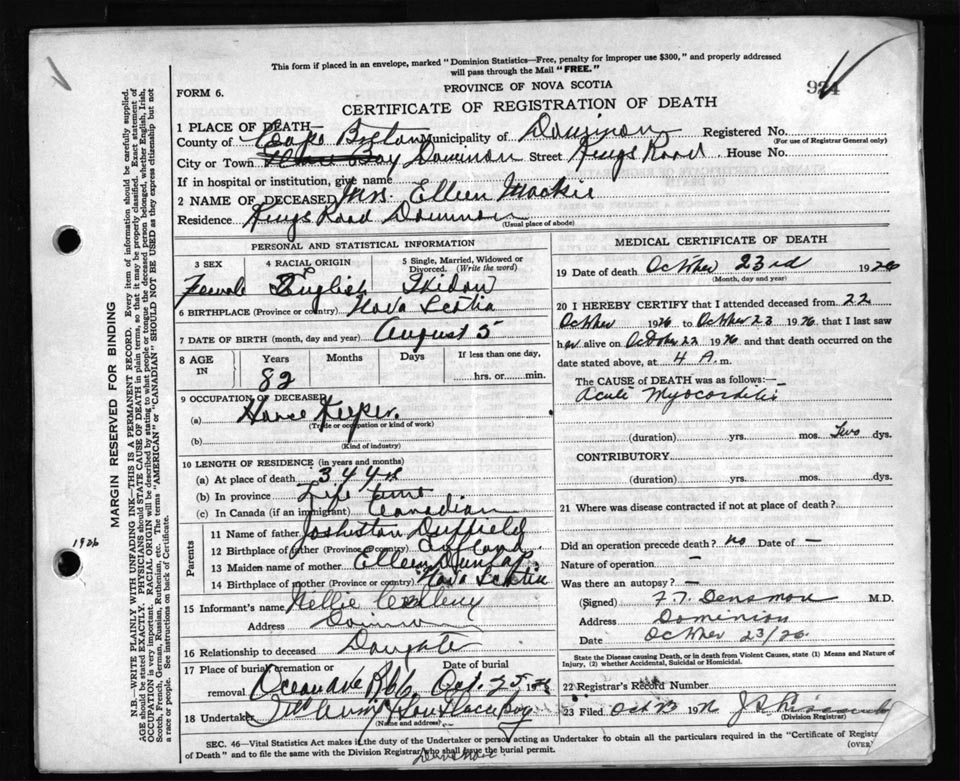 This form if placed in an envelope, marked "Dominion Statistics—Free, penalty for improper use $300," and properly addressed
will pass through the Mail "FREE."
FORM 6.
PROVINCE OF NOVA SCOTIA
CERTIFICATE OF REGISTRATION OF DEATH
1 PLACE OF DEATH—
County of Cape Breton Municipality of Dominion Registered No.
(For use of Registrar General only)
City or Town Glace Bay Dominion Street Kings Road House No.
If in hospital or institution, give name
2 NAME OF DECEASED Mrs. Elleen Mackie
Residence Kings Road Dominion
(Usual place of abode)
PERSONAL AND STATISTICAL INFORMATION
3 SEX 4 RACIAL ORIGIN 5 Single, Married, Widowed or Divorced. (Write the word)
Female English
6 BIRTHPLACE (Province or country) Nova Scotia
7 DATE OF BIRTH (month, day and year) August 5
8 AGE IN Years Months Days If less than one day,
82 hrs. or min.
9 OCCUPATION OF DECEASED
(a) House Keeper.
(Trade or occupation or kind of work)
(b)
(Kind of industry)
10 LENGTH OF RESIDENCE (in years and months)
(a) At place of death
(b) In province Life Time
(c) In Canada (if an immigrant) Canadian
Parents
11 Name of father Duffield
12 Birthplace of father (Province or country)
13 Maiden name of mother Elleen Dunlap
14 Birthplace of mother (Province or country) Nova Scotia
15 Informant's name Nellie
Address Dominion
16 Relationship to deceased
17 Place of burial, cremation or removal Date of burial
Oct. 25 1926
18 Undertaker
(Name and address)
MEDICAL CERTIFICATE OF DEATH
19 Date of death October 23rd 1926
(Month, day and year)
20 I HEREBY CERTIFY that I attended deceased from 22
October 1926 to October 23 1926, that I last saw
her alive on October 22 1926 and that death occurred on the
date stated above, at 4 A. m.
The CAUSE OF DEATH was as follows:—
Acute Myocarditis
(duration) yrs. mos. Two dys.
CONTRIBUTORY.
(duration) yrs. mos. dys.
21 Where was disease contracted if not at place of death?
Did an operation precede death? no Date of —
Nature of operation —
Was there an autopsy? —
(Signed) F.T. Densmore M.D.
Address Dominion
Date October 23/26
State the Disease causing Death, or in death from Violent Causes, state (1) Means and Nature of
Injury, (2) whether Accidental, Suicidal or Homicidal.
22 Registrar's Record Number
23 Filed Oct 1926
(Division Registrar)
SEC. 46—Vital Statistics Act makes it the duty of the Undertaker or person acting as Undertaker to obtain all the particulars required in the "Certificate of
of Death" and to file the same with the Division Registrar who shall issue the burial permit.
(OVER)
MARGIN RESERVED FOR BINDING
N.B.—WRITE PLAINLY WITH UNFADING INK—THIS IS A PERMANENT RECORD. Every item of information should be carefully supplied.
AGE should be stated EXACTLY. PHYSICIANS should STATE CAUSE OF DEATH in plain terms, so that it may be properly classified. Exact statement of
OCCUPATION is very important. RACIAL ORIGIN will be described by stating to what people or tongue the deceased person belonged, whether English, Irish,
Scotch, French, German, Russian, Ruthenian, etc. The terms "AMERICAN" or "CANADIAN" SHOULD NOT BE USED as they express citizenship but not
a race or people. See instructions on back of Certificate.
1926